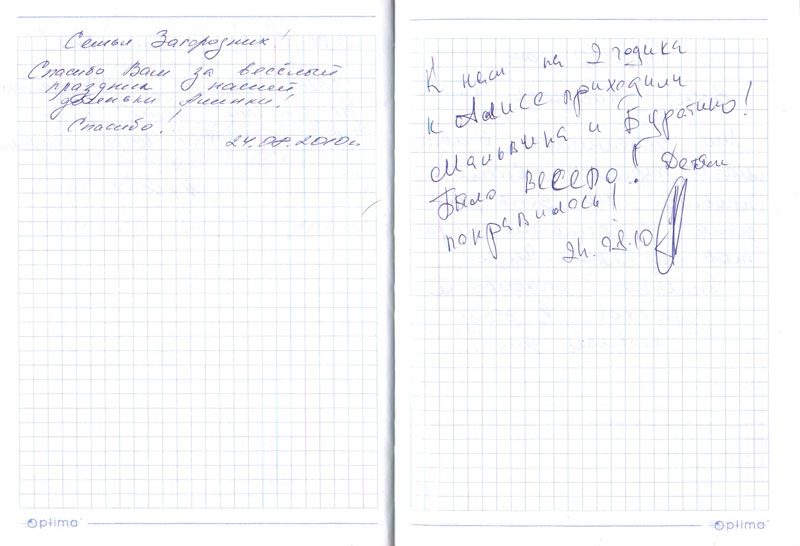 Семья Загородник!
Спасибо Вам за весёлый
праздник нашей
доченьки Алинки!
Спасибо!
24.08.2010г.
Optima
К нам на 2 годика
к Алисе приходили
Мальвина и Буратино!
Было весело! Детям
понравилось!
24.08.10
Optima